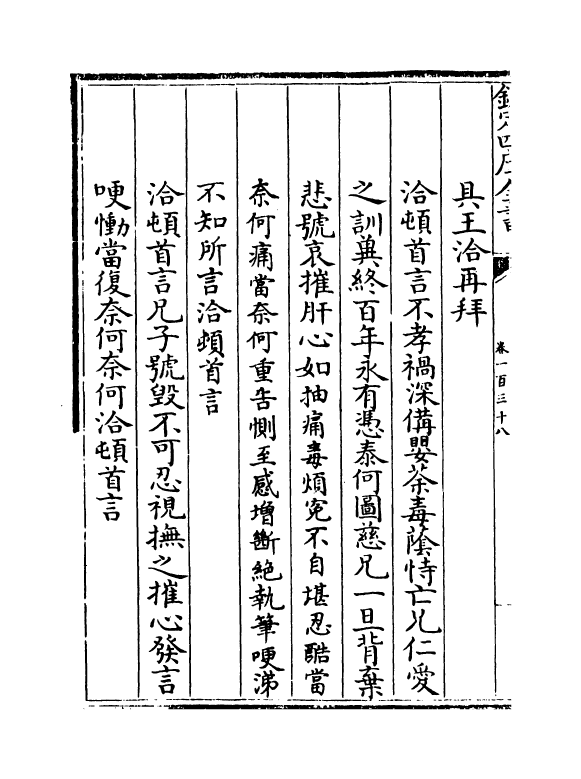 欽定四庫全書
卷一百三十八
具王洽再拜
洽頓首言不孝禍深備嬰荼毒蔭恃亡兄仁愛
之訓兾終百年永有憑泰何圖慈兄一旦背棄
悲號哀摧肝心如抽痛毒煩冤不自堪忍酷當
奈何痛當奈何重告惻至感增斷絶執筆哽涕
不知所言洽頓首言
洽頓首言兄子號毀不可忍視撫之摧心發言
哽慟當復奈何奈何洽頓首言